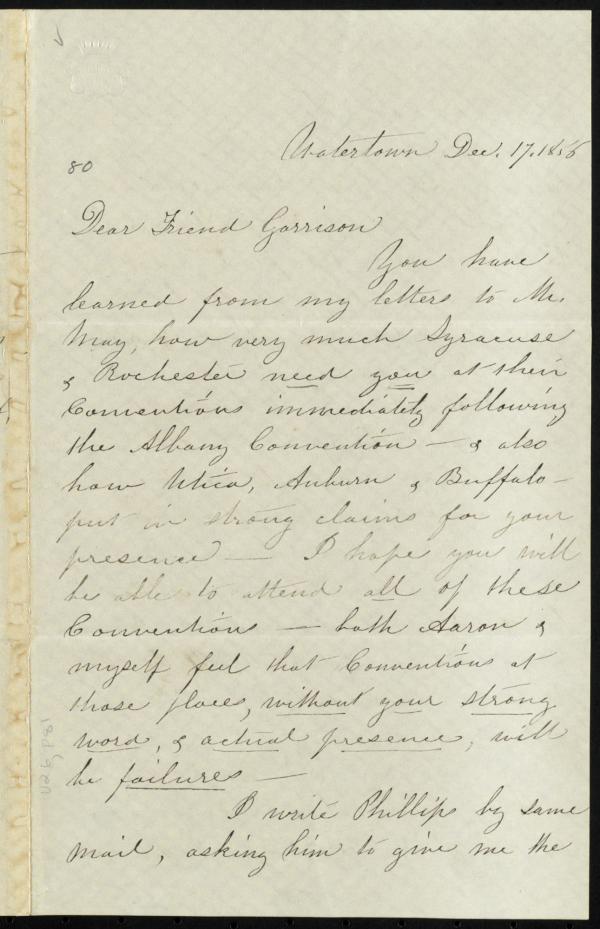 80
Watertown Dec. 17. 1856
Dear Friend Garrison
You have
learned from my letters to Mr.
May, how very much Syracuse
& Rochester need you at their
Conventions immediately following
the Albany Convention — & also
how Utica, Auburn & Buffalo —
put in strong claims for your
presence — I hope you will
be able to attend all of these
Conventions — both Aaron &
myself feel that Conventions at
those places, without your strong
word, & actual presence, will
be failures —
I write Phillips by same
mail, asking him to give me the
V26, P81